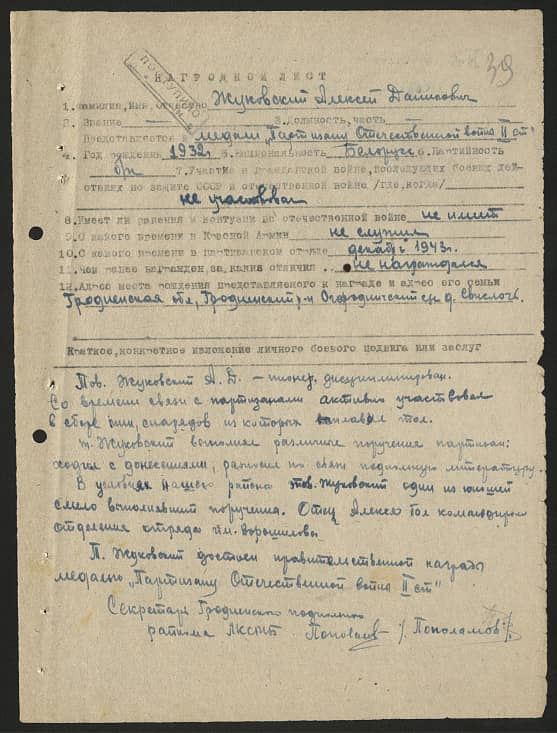 39
ПОСТУПИЛО
НАГРАДНОЙ ЛИСТ
1. Фамилия, имя, отчество Жуковский Алексей Данилович
2. Звание 3. Должность, часть
Представляется к медали "Партизану Отечественной войны II ст"
4. Год рождения 1932г. 5. Национальность Белорус 6. Партийность
б/п 7. Участие в гражданской войне, последующих боевых дей-
ствиях по защите СССР и отечественной войне /где, когда/
не участвовал
8. Имеет ли ранения и контузии в отечественной войне не имеет
9. С какого времени в Красной Армии не служил
10. С какого времени в партизанском отряде декабрь 1943г.
11. Чем ранее награжден, за какие отличия .. не награждался
12. Адрес места рождения представляемого к награде и адрес его семьи
Гродненская обл, Гродненский р-н д. Свислочь.
Краткое, конкретное изложение личного боевого подвига или заслуг
Тов. Жуковский А. Д. – пионер, дисциплинирован.
Со времени связи с партизанами активно участвовал
в сборе мин, снарядов из которых выплавлял тол.
т. Жуковский выполнял различные поручения партизан:
ходил с донесениями, разносил по связи подпольную литературу.
В условиях нашего района тов. Жуковский один из юношей
смело выполнявший поручения. Отец Алексея был командиром
отделения отряда им. Ворошилова.
Т. Жуковский достоин правительственной награды
медалью "Партизану Отечественной войны II ст"
Секретарь Гродненского подпольного
райкома ЛКСМБ